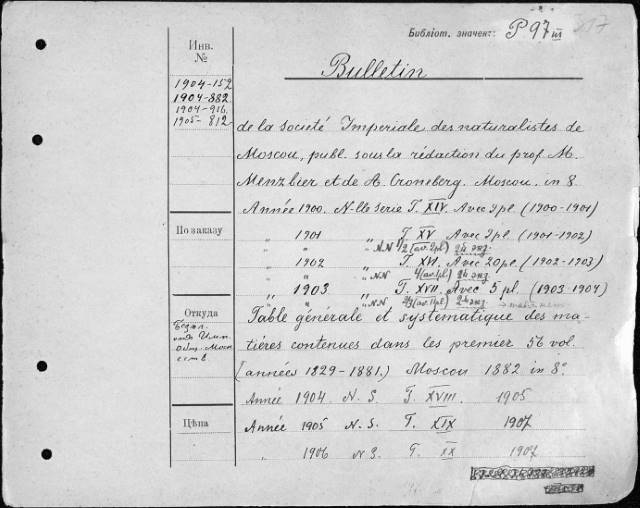 Библіот. значекъ: P 97 III
Инв.
№
1904-152
1904-882
1904-916
1905-812
Bulletin
de la Société Imperiale des naturalistes de
Moscou, publ. sous la rédaction du prof. M.
Menzbier et de A. Croneberg. Moscou. in 8.
Année 1900. N-lle serie T. XIV. Avec 9 pl. (1900-1901)
По заказу
" 1901 " T. XV Avec 9 pl (1901-1902)
" " " NN 1/2 (av. 9 pl) 2й экз
" 1902 T. XVI. Avec 20 pl. (1902-1903)
" " " NN 4 (av. 1 pl) 2й экз
" 1903 " T. XVII. Avec 5 pl. (1903-1904)
" " " NN 2/3 (av. 1 pl) 2й экз
Откуда
Table générale et systematique des ma-
tiéres contenues dans les premier 56 vol.
(années 1829-1881.) Moscou 1882 in 8°
Année 1904 N. S. T. XVIII. 1905
Цѣна
Année 1905 N. S. T. XIX 1907
" 1906 N S. T. XX 1907